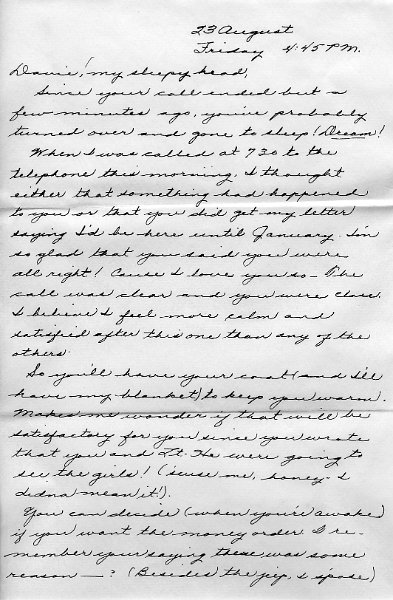 23 August
Friday 4:45 P.M.
Davie! my sleepy head,
Since your call ended but a
few minutes ago, you've probably
turned over and gone to sleep! Dream!
When I was called at 730 to the
telephone this morning, I thought
either that something had happened
to you or that you did get my letter
saying I'd be here until January. I'm
so glad that you said you were
all right! Cause I love you so - The
call was clear and you were close.
I believe I feel more calm and
satisfied after this one than any of the
others.
So you'll have your coat (and I'll
have my blanket) to keep you warm.
Makes me wonder if that will be
satisfactory for you since you wrote
that you and Lt. He were going to
see the girls! ('scuse me, honey - I
didna mean it!).
You can decide (when you're awake)
if you want the money order. I re-
member your saying there was some
reason —? (Besides the jeep, I s'pose)